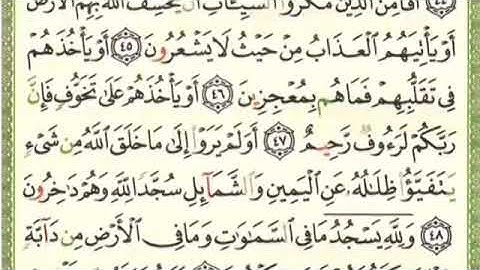 ٤٤ أَفَأَمِنَ الَّذِينَ مَكَرُوا السَّيِّـَٔاتِ أَن يَخْسِفَ اللَّهُ بِهِمُ الْأَرْضَ
أَوْ يَأْتِيَهُمُ الْعَذَابُ مِنْ حَيْثُ لَا يَشْعُرُونَ ٤٥ أَوْ يَأْخُذَهُمْ
فِي تَقَلُّبِهِمْ فَمَا هُم بِمُعْجِزِينَ ٤٦ أَوْ يَأْخُذَهُمْ عَلَىٰ تَخَوُّفٍ فَإِنَّ
رَبَّكُمْ لَرَءُوفٌ رَّحِيمٌ ٤٧ أَوَلَمْ يَرَوْا إِلَىٰ مَا خَلَقَ اللَّهُ مِن شَيْءٍ
يَتَفَيَّؤُا ظِلَالُهُ عَنِ الْيَمِينِ وَالشَّمَآئِلِ سُجَّدًا لِّلَّهِ وَهُمْ دَاخِرُونَ
٤٨ وَلِلَّهِ يَسْجُدُ مَا فِي السَّمَاوَاتِ وَمَا فِي الْأَرْضِ مِن دَآبَّةٍ